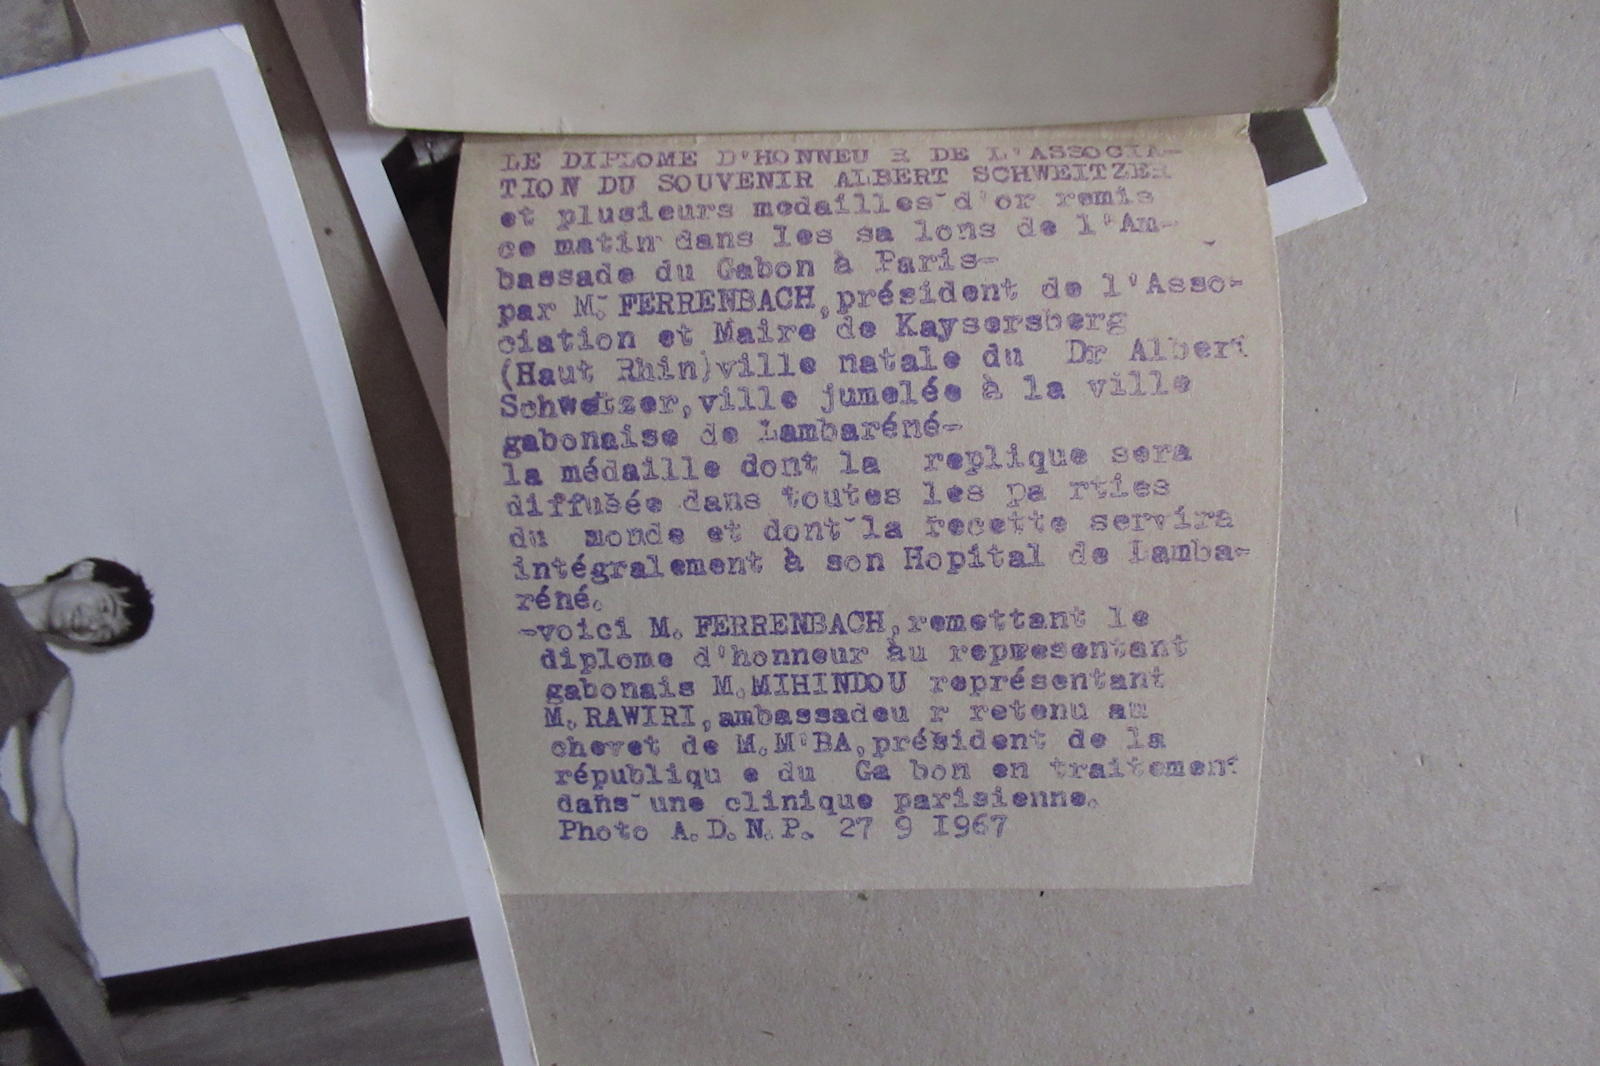 LE DIPLOME D'HONNEU R DE L'ASSOCIA-
TION DU SOUVENIR ALBERT SCHWEITZER
et plusieurs medailles d'or remis
ce matin dans les sa lons de l'Am-
bassade du Gabon à Paris-
par M. FERRENBACH,président de l'Asso-
ciation et Maire de Kaysersberg
(Haut Rhin)ville natale du Dr Albert
Schwetzer,ville jumelée à la ville
gabonaise de Lambaréné-
la médaille dont la replique sera
diffusée dans toutes les pa rties
du monde et dont la recette servira
intégralement à son Hopital de Lamba-
réné.
-voici M. FERRENBACH,remettant le
diplome d'honneur au representant
gabonais M.MIHINDOU représentant
M.RAWIRI,ambassadeu r retenu au
chevet de M.M'BA,président de la
républiqu e du Ga bon en traitement
dans une clinique parisienne.
Photo A.D.N.P. 27 9 I967